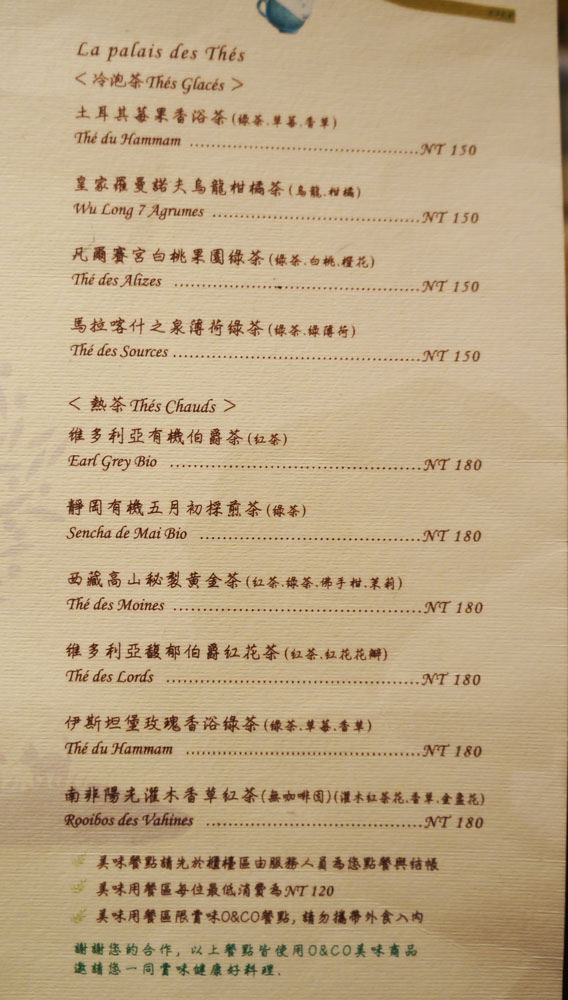 La palais des Thés
< 冷泡茶Thés Glacés >
土耳其莓果香浴茶(綠茶.草莓.香草)
Thé du Hammam ................................................NT 150
皇家羅曼諾夫烏龍柑橘茶(烏龍.柑橘)
Wu Long 7 Agrumes ............................................NT 150
凡爾賽宮白桃果園綠茶(綠茶.白桃.橙花)
Thé des Alizes ..................................................NT 150
馬拉喀什之泉薄荷綠茶(綠茶.綠薄荷)
Thé des Sources ................................................NT 150
< 熱茶Thés Chauds >
維多利亞有機伯爵茶(紅茶)
Earl Grey Bio ...................................................NT 180
靜岡有機五月初採煎茶(綠茶)
Sencha de Mai Bio .............................................NT 180
西藏高山秘製黃金茶(紅茶.綠茶.佛手柑.茉莉)
Thé des Moines .................................................NT 180
維多利亞馥郁伯爵紅花茶(紅茶.紅花花瓣)
Thé des Lords ..................................................NT 180
伊斯坦堡玫瑰香浴綠茶(綠茶.草莓.香草)
Thé du Hammam ...............................................NT 180
南非陽光灌木香草紅茶(無咖啡因)(灌木紅茶花.香草.金盞花)
Rooibos des Vahines ...........................................NT 180
美味餐點請先於櫃檯區由服務人員為您點餐與結帳
美味用餐區每位最低消費為NT 120
美味用餐區限賞味O&CO餐點,請勿攜帶外食入內
謝謝您的合作,以上餐點皆使用O&CO美味商品
邀請您一同賞味健康好料理.